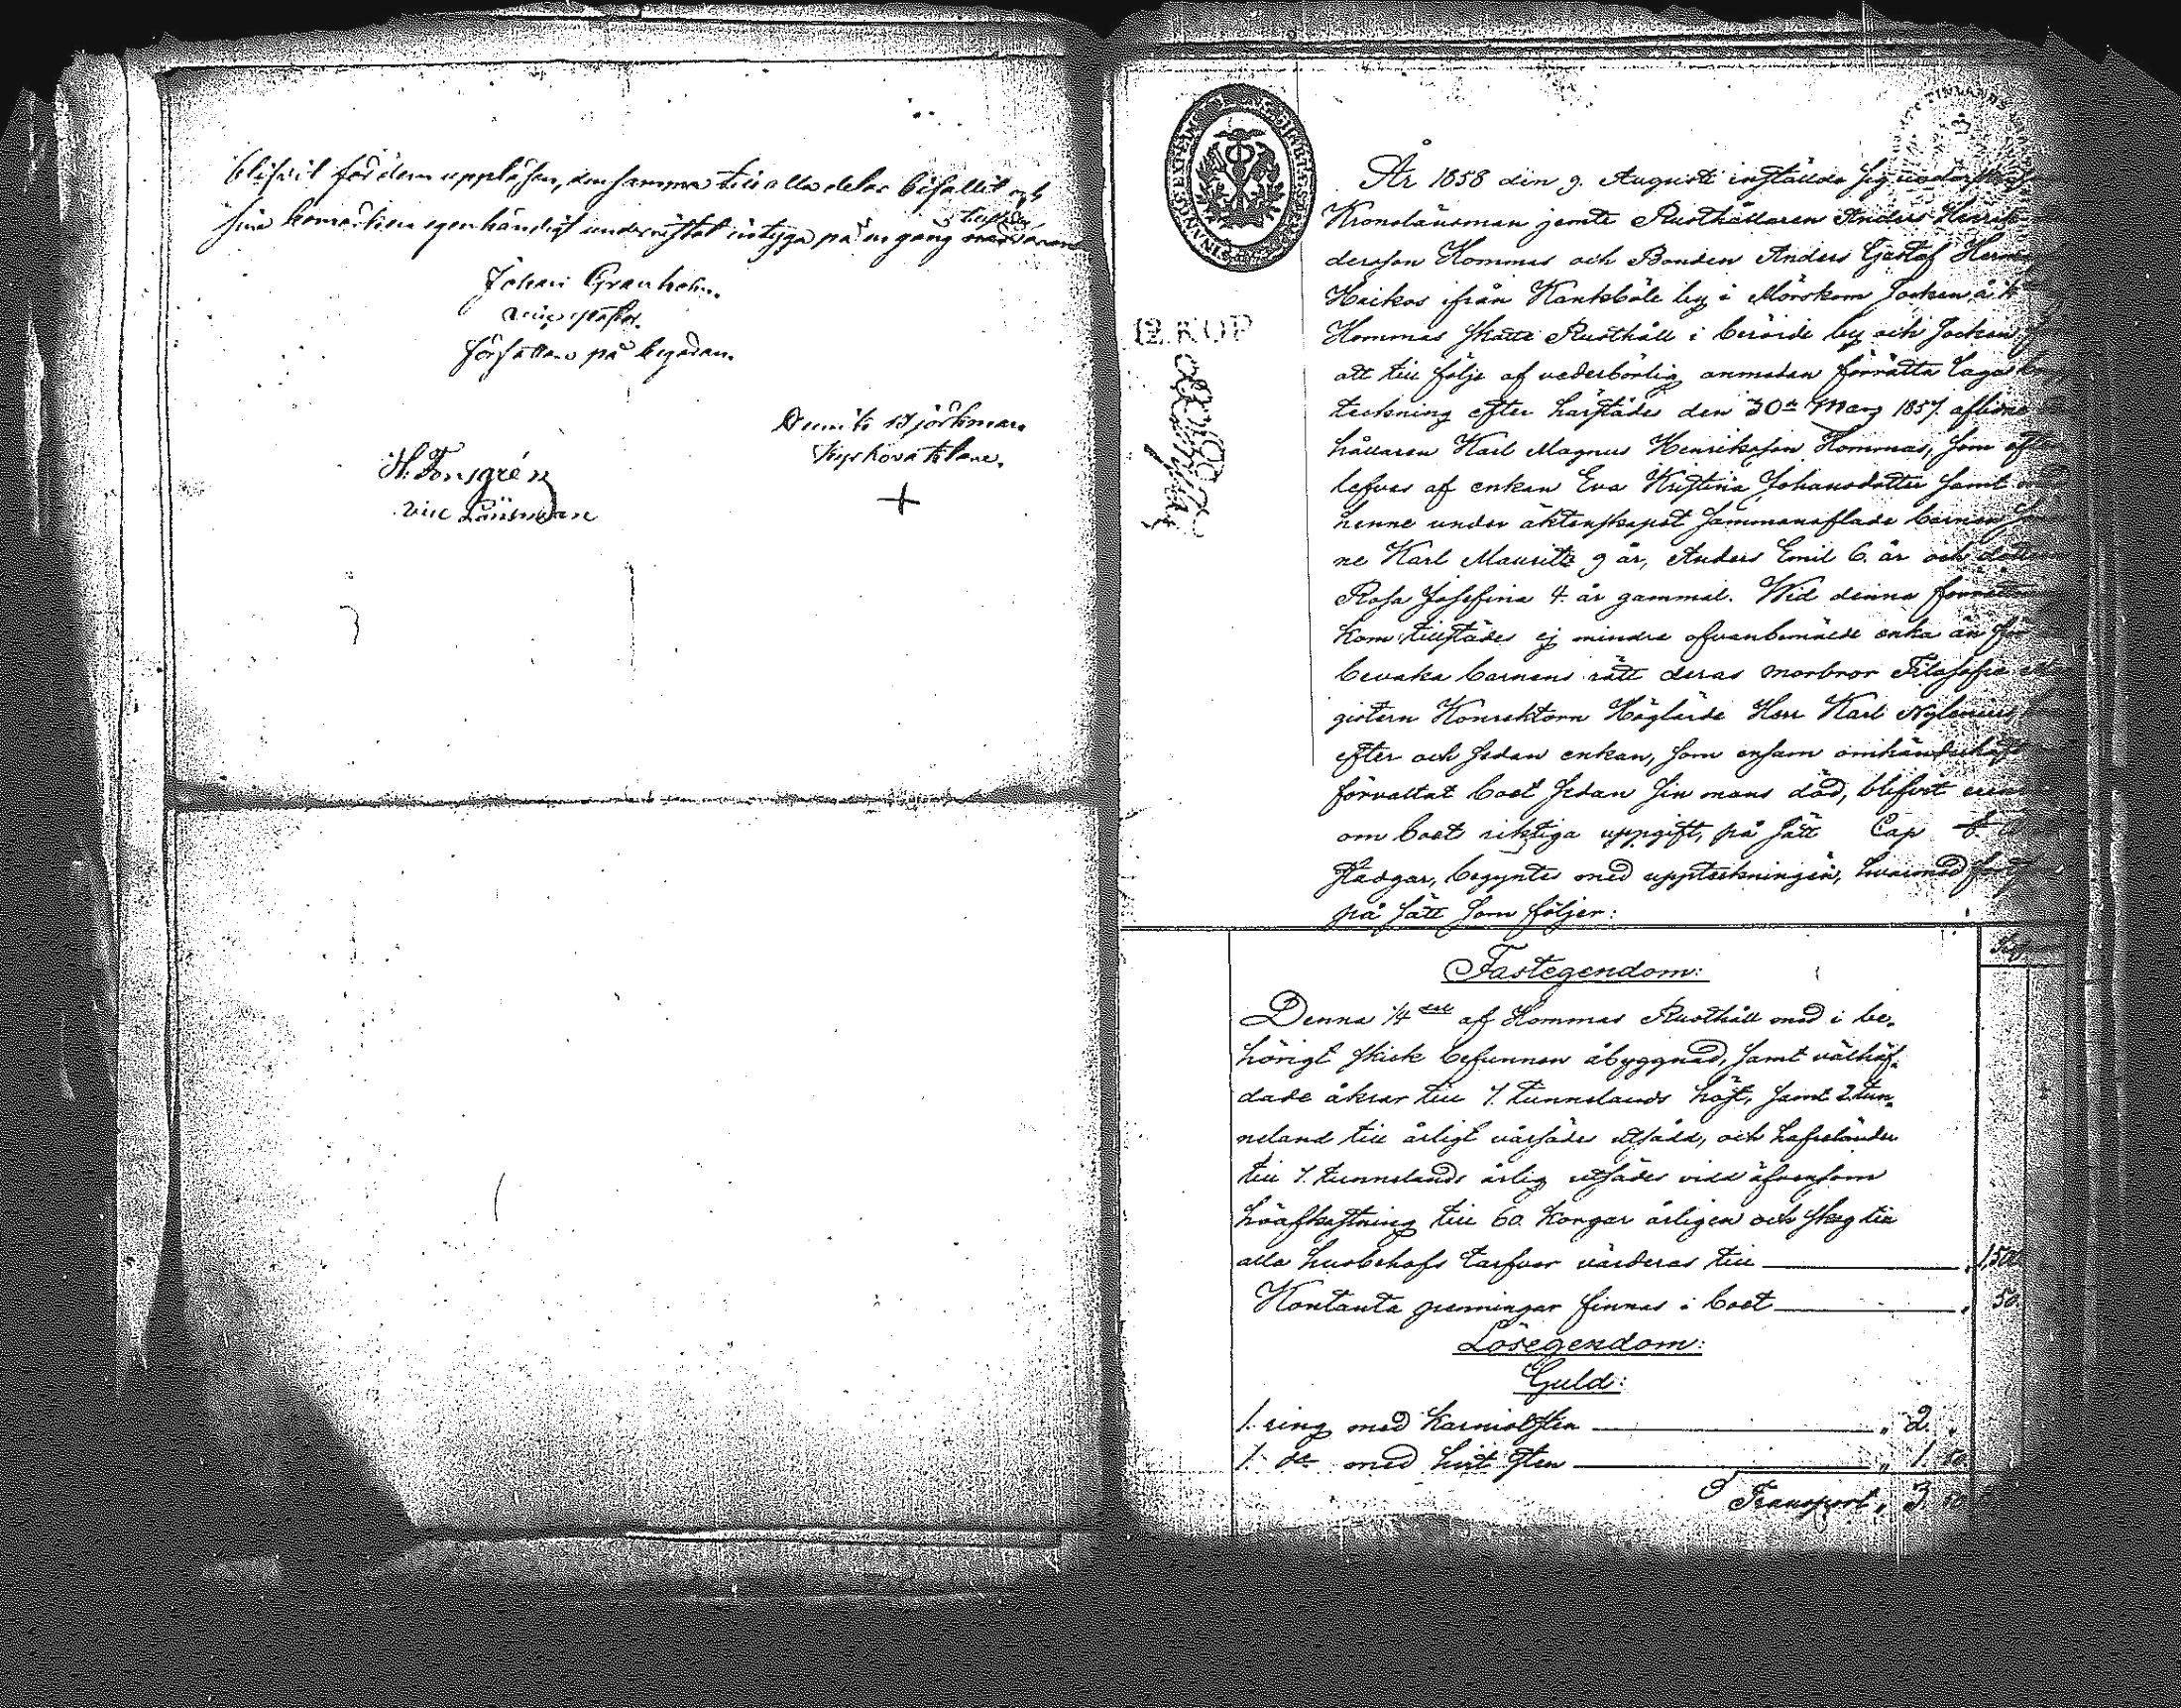 blifvit för dem uppläsen, densamma till alla delar bifallit och
sina bomärken egenhändigt underristat intyga på en gång närvarande
Johan Granholm.
författare på begäran.
Björkman.
Kyrkovaktare.
+
H. Forsgrén
vice Länsman
FINANSEXPED
FINLANDS
12. KOP
År 1858 den 9. Augusti inställde sig undertecknad
Kronolänsman jemte Rusthållaren Anders Henrik
dersson Hommas och Bonden Anders Gustaf Herman
Heikos ifrån Kankböle by i Mörskom Socken, å 1/4
Hommas Skatte Rusthåll i berörde by och Socken
att till följe af vederbörlig anmodan förrätta laga
teckning efter härstädes den 30de Mars 1857. aflidne
hållaren Karl Magnus Henriksson Hommas, som efter
lefves af enkan Eva Kristina Johansdotter samt med
henne under äktenskapet sammanaflade barnen
ne Karl Mauritz 9 år, Anders Emil 6. år och dottren
Rosa Josefina 4. år gammal. Wid denna förrättning
kom tillstädes ej mindre ofvanbemälde enka än för
bevaka barnens rätt deras morbror Filosofie Ma
gistern Konrektorn Höglärde Herr Karl Nylenius
efter och sedan enkan, som ensam omhänderhaft
förvaltat boet sedan sin mans död, blifvit
om boets riktiga uppgift, på sätt Cap
stadgar, begyntes med uppteckningen, hvarmed
på sätt som följer:
Fastegendom:
Denna 1/4 del af Hommas Rusthåll med i be-
hörigt skick befunnen åbyggnad, samt välhäf-
dade åkrar till 7. tunnelands höst, samt 2 tun-
neland till årligt vårsädes utsädd, och hafreländer
till 7. tunnelands årlig utsädes vidd äfvensom
höafkastning till 60. kongar årligen och skog till
alla husbehofs tarfvor värderas till 1,500
Kontanta penningar finnas i boet 50.
Lösegendom:
Guld:
1. ring med karniolsten " 2. "
1. do med hvit sten " 1. 50.
Transport " 3. 50